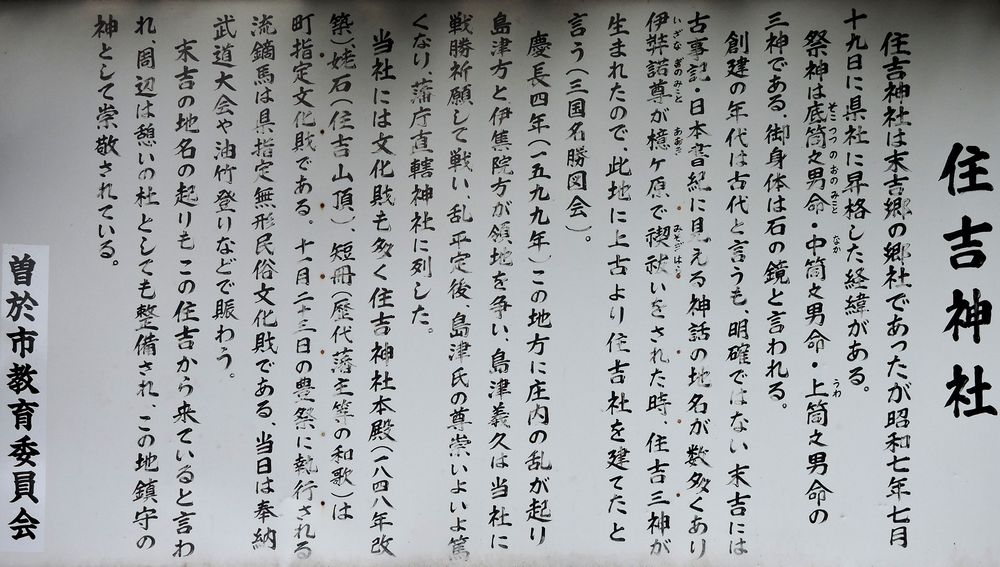 住吉神社
住吉神社は末吉郷の郷社であったが昭和七年七月
十九日に県社に昇格した経緯がある。
祭神は底筒之男命・中筒之男命・上筒之男命の
そこつつのおのみこと なか うわ
三神である。御身体は石の鏡と言われる。
創建の年代は古代と言うも、明確ではない末吉には
古事記・日本書紀に見える神話の地名が数多くあり
伊弉諾尊が檍ヶ原で禊祓いをされた時、住吉三神が
いざなぎのみこと あおき みそぎはら
生まれたので、此地に上古より住吉社を建てたと
言う(三国名勝図会)。
慶長四年(一五九九年)この地方に庄内の乱が起り
島津方と伊集院方が領地を争い、島津義久は当社に
戦勝祈願して戦い乱平定後、島津氏の尊崇いよいよ篤
くなり藩庁直轄神社に列した。
当社には文化財も多く住吉神社本殿(一八四八年改
築)、姥石(住吉山頂)、短冊(歴代藩主等の和歌)は
町指定文化財である。十一月二十三日の豊祭に執行される
流鏑馬は県指定無形民俗文化財である、当日は奉納
武道大会や油竹登りなどで賑わう。
末吉の地名の起りもこの住吉から来ていると言わ
れ、周辺は憩いの杜としても整備され、この地鎮守の
神として崇敬されている。
曽於市教育委員会